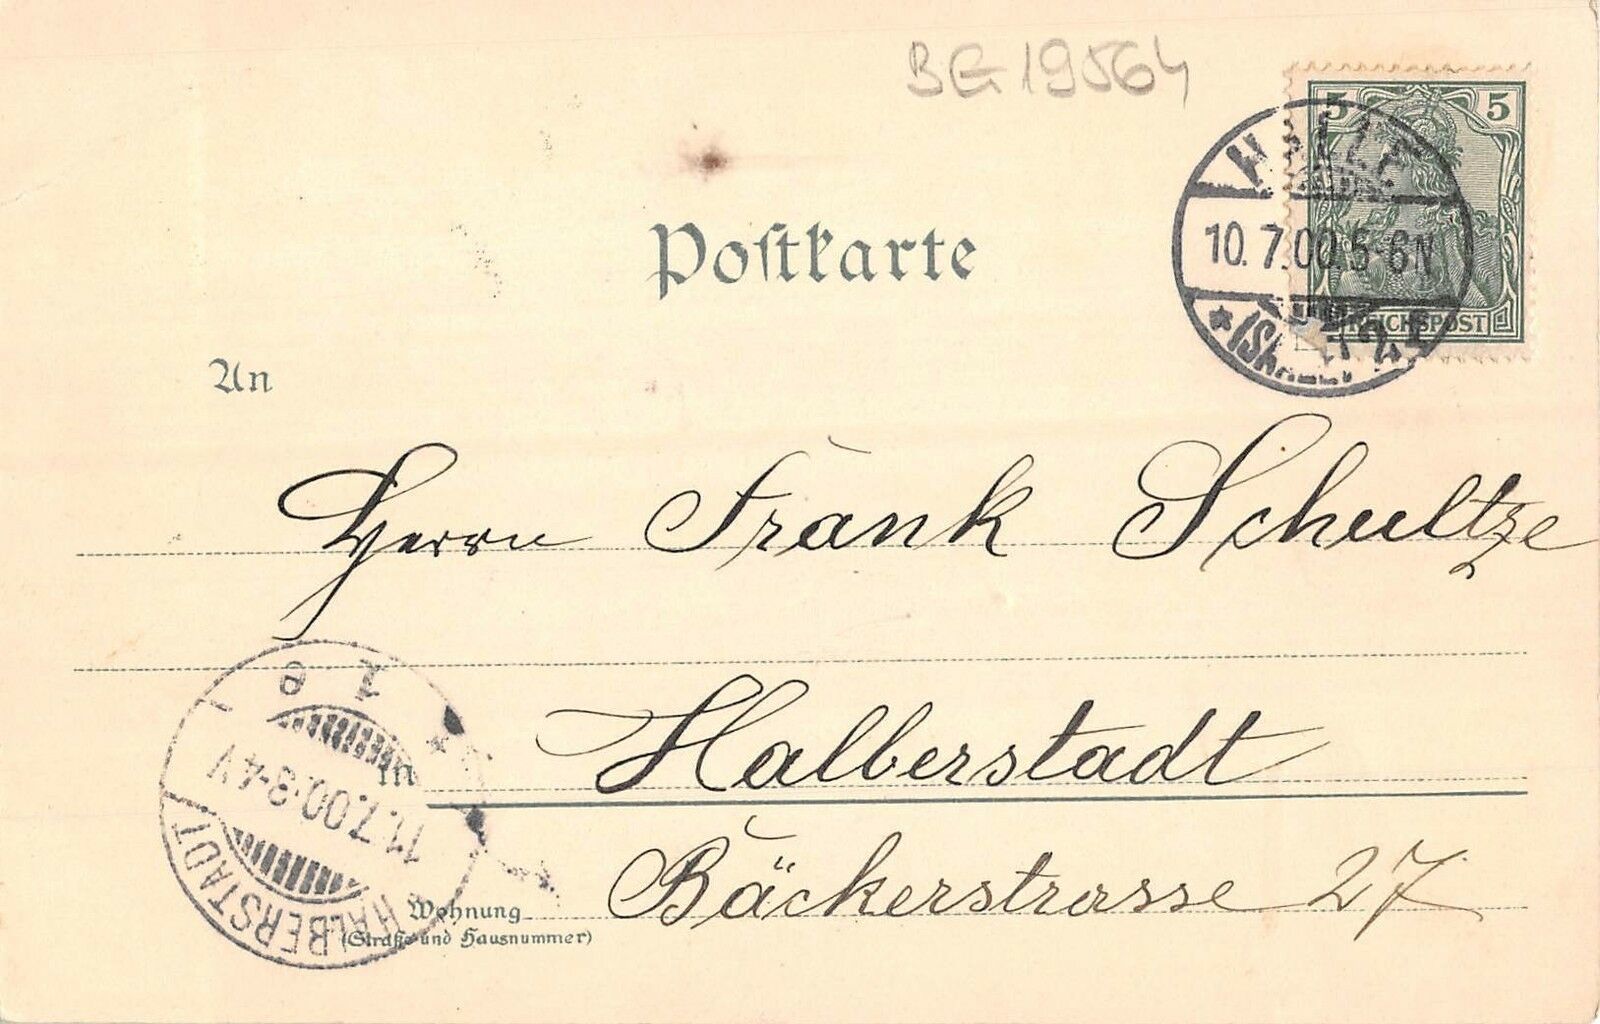 BG 19564
5 5
HALLE
10.7.00.5-6N
REICHSPOST
Poſtkarte
An
Herrn Frank Schultze
1 e
Halberstadt
in
11.7.00.3-4V
HALBERSTADT
Bäckerstrasse 27
Wohnung
(Straße und Hausnummer)